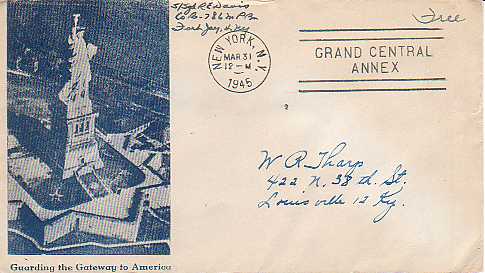 S/Sgt R E Davis
Co B-786 M.P. Bn
Fort Jay, N.Y.
Free
NEW YORK, N.Y.
MAR 31
12-M
1945
GRAND CENTRAL
ANNEX
W R Tharp
422 N, 38 th. St.
Louisville 12 Ky.
Guarding the Gateway to America